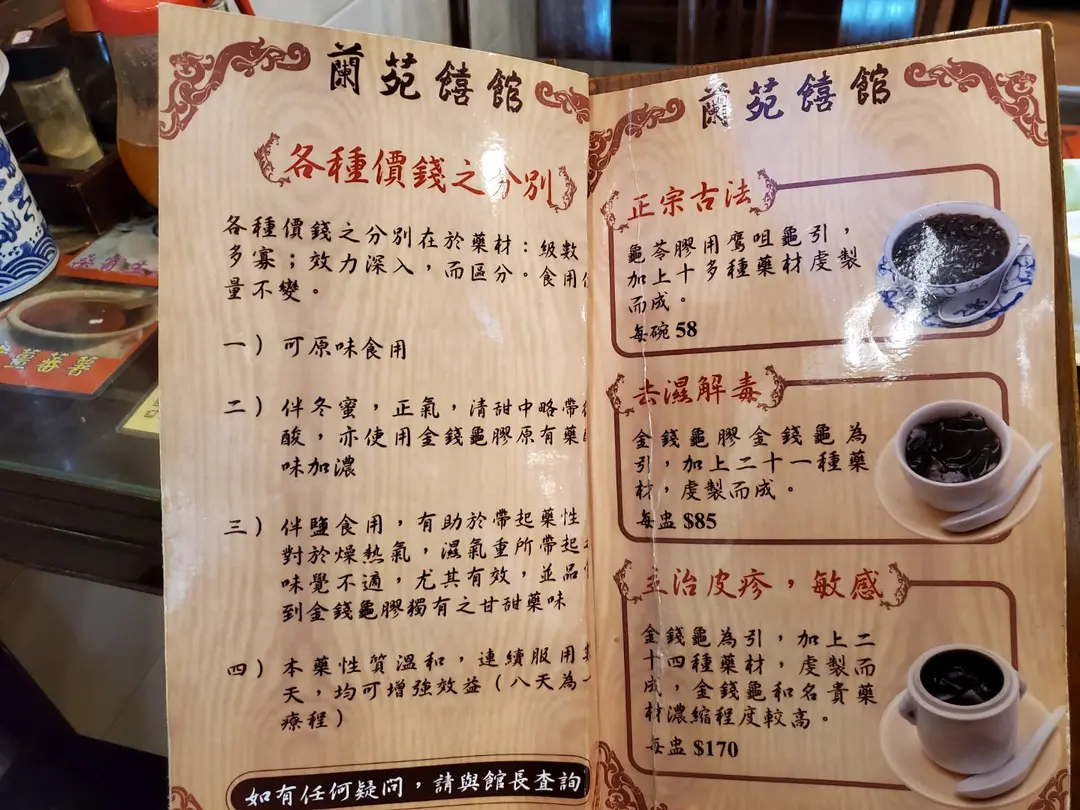 蘭苑饎館
各種價錢之分別
各種價錢之分別在於藥材：級數
多寡；效力深入，而區分。食用
量不變。
一）可原味食用
二）伴冬蜜，正氣，清甜中略帶
酸，亦使用金錢龜膠原有藥
味加濃
三）伴鹽食用，有助於帶起藥性
對於燥熱氣，濕氣重所帶起
味覺不適，尤其有效，並品
到金錢龜膠獨有之甘甜藥味
四）本藥性質溫和，連續服用
天，均可增強效益（八天為
療程）
如有任何疑問，請與館長查詢
蘭苑饎館
正宗古法
龜苓膠用鷹咀龜引，
加上十多種藥材虔製
而成。
每碗 58
去濕解毒
金錢龜膠金錢龜為
引，加上二十一種藥
材，虔製而成。
每盅 $85
主治皮疹，敏感
金錢龜為引，加上二
十四種藥材，虔製而
成，金錢龜和名貴藥
材濃縮程度較高。
每盅 $170
薑蕃薯